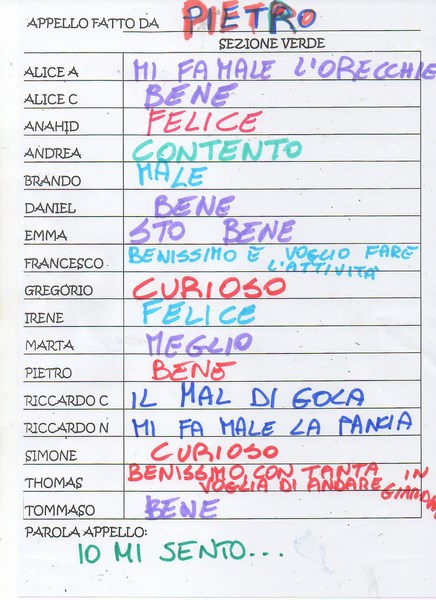 APPELLO FATTO DA PIETRO
SEZIONE VERDE
ALICE A MI FA MALE L'ORECCHIE
ALICE C BENE
ANAHID FELICE
ANDREA CONTENTO
BRANDO MALE
DANIEL BENE
EMMA STO BENE
FRANCESCO BENISSIMO E VOGLIO FARE
L'ATTIVITA'
GREGORIO CURIOSO
IRENE FELICE
MARTA MEGLIO
PIETRO BENE
RICCARDO C IL MAL DI GOLA
RICCARDO N MI FA MALE LA PANCIA
SIMONE CURIOSO
THOMAS BENISSIMO CON TANTA
VOGLIA DI ANDARE IN
TOMMASO BENE
PAROLA APPELLO:
IO MI SENTO...